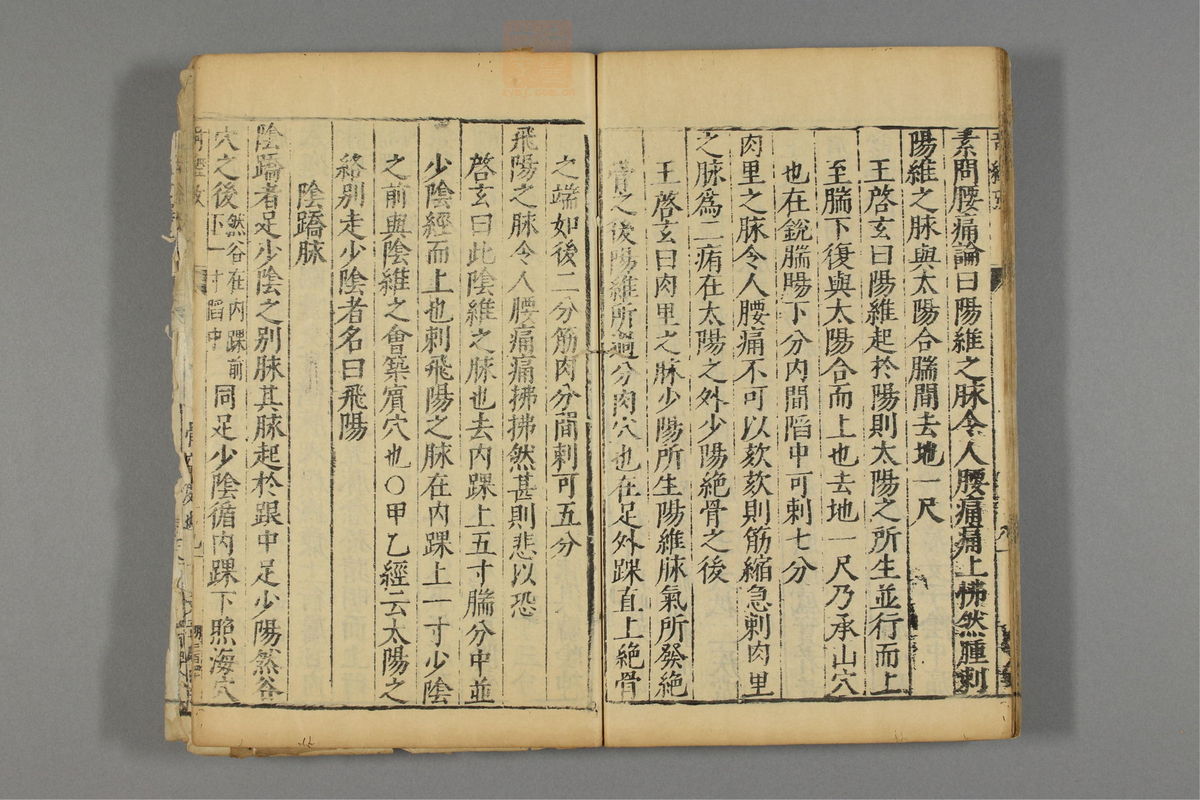 素問腰痛論曰陽維之脉令人腰痛痛上怫然腫刺
陽維之脉與太陽合腨間去地一尺
王啓玄曰陽維起於陽則太陽之所生並行而上
至腨下復與太陽合而上也去地一尺乃承山穴
也在銳腨腸下分肉間陷中可刺七分
肉里之脉令人腰痛不可以欬欬則筋縮急刺肉里
之脉為二痏在太陽之外少陽絶骨之後
王啓玄曰肉里之脉少陽所生陽維脉氣所發絶
骨之後陽維所過分肉穴也在足外踝直上絶骨
之端如後二分筋肉分間刺可五分
飛陽之脉令人腰痛痛拂拂然甚則悲以恐
啓玄曰此陰維之脉也去內踝上五寸腨分中並
少陰經而上也刺飛陽之脉在內踝上一寸少陰
之前與陰維之會築賓穴也○甲乙經云太陽之
絡別走少陰者名曰飛陽
陰蹻脉
陰蹻者足少陰之别脉其脉起於跟中足少陽然谷
穴之後然谷在內踝前下一寸陷中同足少陰循內踝下照海穴